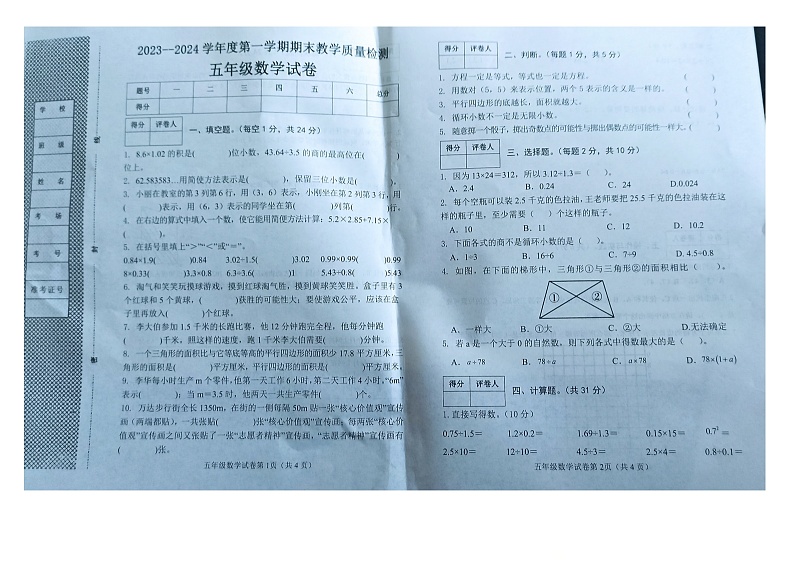 学 校
班 级
姓 名
考 场
考 号
准考证号
线
封
密
2023--2024 学年度第一学期期末教学质量检测
五年级数学试卷
题号 一 二 三 四 五 六 总分
得分
得分 评卷人
一、填空题。（每空 1 分，共 24 分）
1. 8.6×1.02 的积是(   )位小数，43.64÷3.5 的商的最高位在(   )
位上。
2. 62.583583…用简便方法表示是(   )，保留三位小数是(   )。
3. 小丽在教室的第 3 列第 6 行，用（3，6）表示，小刚坐在第 2 列第 3 行，用
(   )表示，用（6，3）表示的同学坐在第(   )列第(   )行。
4. 在右边的算式中填入一个数，使它能用简便方法计算：5.2×2.85+7.15×
(   )。
5. 在括号里填上“＞”“＜”或“=”。
0.84×1.9(   )0.84 3.02÷1.5(   )3.02 0.99×0.99(   )0.99
8×0.33(   )3.3×0.8 6.3÷3.6(   )1 5.43÷0.8(   )5.43
6. 淘气和笑笑玩摸球游戏，摸到红球淘气胜，摸到黄球笑笑胜。盒子里有 3
个红球和 5 个黄球，(   )获胜的可能性大；要使游戏公平，应该在盒
子里再放入(   )个(   )球。
7. 李大伯参加 1.5 千米的长跑比赛，他 12 分钟跑完全程，他每分钟跑
(   )千米。照这样的速度，跑 1 千米李大伯需要(   )分钟。
8. 一个三角形的面积比与它等底等高的平行四边形的面积少 17.8 平方厘米，三
角形的面积是(   )平方厘米，平行四边形的面积是(   )平方厘米。
9. 李华每小时生产 m 个零件，他第一天工作 6 小时，第二天工作 4 小时。“6m”
表示(   )；当 m=3.5 时，他两天一共生产零件(   )个。
10. 万达步行街全长 1350m，在街的一侧每隔 50m 贴一张“核心价值观”宣传
画（两端都贴），一共张贴(   )张“核心价值观”宣传画，每两张“核心价
值观”宣传画之间又张贴了一张“志愿者精神”宣传画，“志愿者精神”宣传画有
(   )张。
五年级数学试卷第 1页（共 4 页）
得分 评卷人
二、判断。（每题 1 分，共 5 分）
1. 方程一定是等式，等式也一定是方程。 (   )
2. 用数对（5，5）来表示位置，两个 5 表示的含义是一样的。 (   )
3. 平行四边形的底越长，面积就越大。 (   )
4. 循环小数不一定是无限小数。 (   )
5. 随意掷一个骰子，掷出奇数点的可能性与掷出偶数点的可能性一样大。(   )
得分 评卷人
三、选择题。（每题 2 分，共 10 分）
1. 因为 13×24＝312，所以 3.12÷1.3＝（   ）。
A、2.4 B、0.24 C、24 D.0.024
2. 每个空瓶可以装 2.5 千克的色拉油，王老师要把 25.5 千克的色拉油装在这
样的瓶子里，至少需要（   ）个这样的瓶子。
A、10 B、11 C、12 D、10.2
3. 下面各式的商不是循环小数的是（   ）。
A、1÷3 B、16÷6 C、7÷9 D、4.5÷0.8
4. 如图，在下面的梯形中，三角形①与三角形②的面积相比（   ）。
① ②
A、一样大 B、①大 C、②大 D.无法确定
5. 若 a 是一个大于 0 的自然数，则下列各式中得数最大的是（   ）。
A、a÷78 B、78÷a C、a×78 D、78×(1+a)
得分 评卷人
四、计算题。（共 31 分）
1.直接写得数。（10 分）
0.75÷1.5＝ 1.2×0.2＝ 1.69÷1.3＝ 0.15×15＝ 0.7²＝
2.5×10＝ 12÷10＝ 4.5÷3＝ 2.5×4＝ 0.8÷0.1＝
五年级数学试卷第 2页（共 4 页）